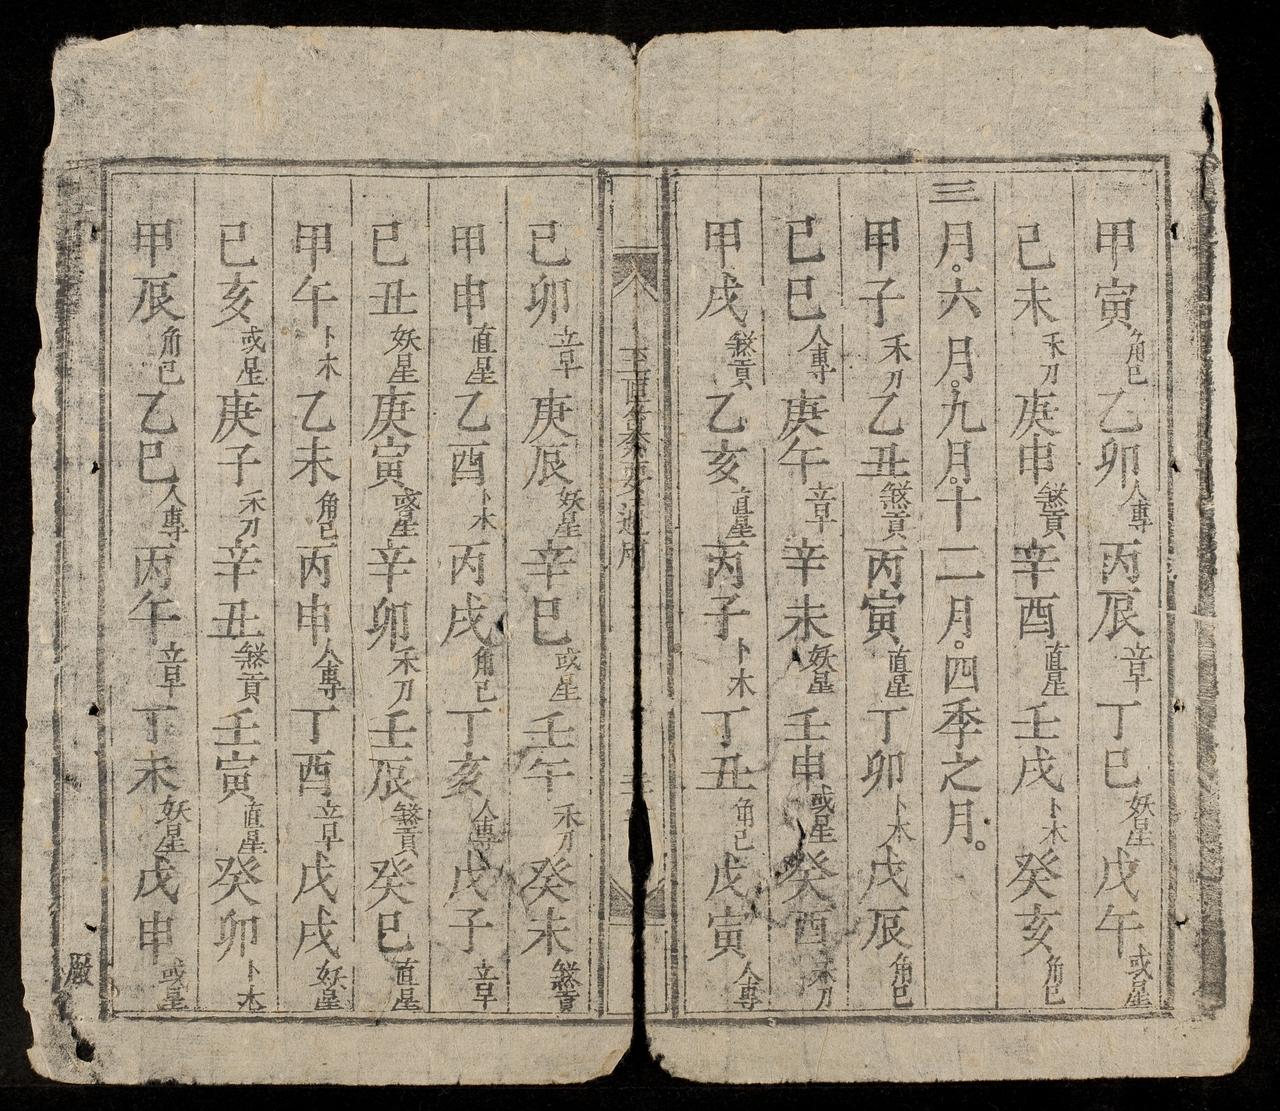 甲寅角己乙卯人專丙辰立早丁巳妖星戊午或星
己未禾刀庚申煞貢辛酉直星壬戌卜木癸亥角己
三月。六月。九月。十二月。四季之月。
甲子禾刀乙丑煞貢丙寅直星丁卯卜木戊辰角己
己巳人專庚午立早辛未妖星壬申或星癸酉禾刀
甲戌煞貢乙亥直星丙子卜木丁丑角己戊寅人專
己卯立早庚辰妖星辛巳或星壬午禾刀癸未煞貢
甲申直星乙酉卜木丙戌角己丁亥人專戊子立早
己丑妖星庚寅或星辛卯禾刀壬辰煞貢癸巳直星
甲午卜木乙未角己丙申人專丁酉立早戊戌妖星
己亥或星庚子禾刀辛丑煞貢壬寅直星癸卯卜木
甲辰角己乙巳人專丙午立早丁未妖星戊申或星